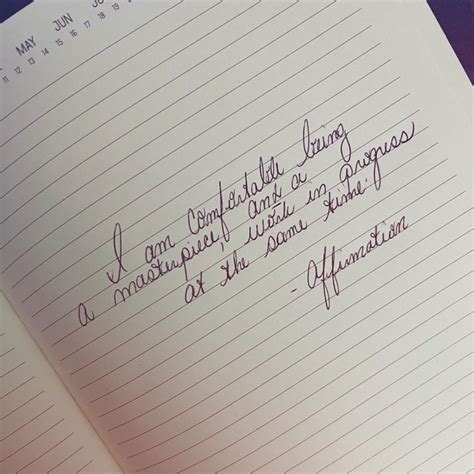 MAY JUN
11 12 13 14 15 16 17 18 19
I am comfortable being
a masterpiece, and a
work in progress
at the same time.
- Affirmation